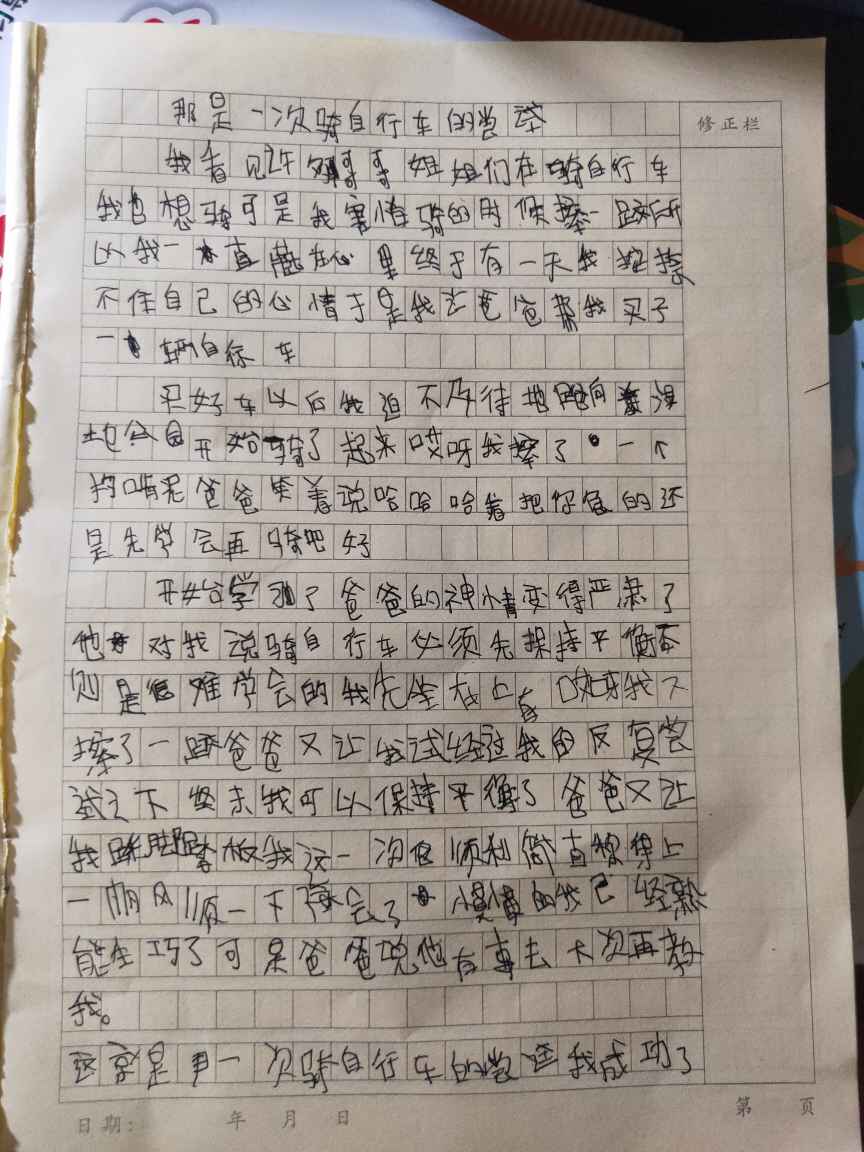 那是一次骑自行车的尝试
修正栏
我看见许多哥哥姐姐们在骑自行车
我也想骑可是我害怕骑的时候摔一跤所
以我一直藏在心里终于有一天我按捺
不住自己的心情于是我去爸爸帮我买了
一辆自行车
买好车以后我迫不及待地跑向
土地公园开始骑了起来哎呀我摔了一个
狗啃泥爸爸笑着说哈哈哈看把你急的还
是先学会再骑吧好
开始学习了爸爸的神情变得严肃了
他对我说骑自行车必须先保持平衡否
则是很难学会的我先坐在上面哎呀我又
摔了一跤爸爸又让我试经过我的反复尝
试之下后来我可以保持平衡了爸爸又让
我踩踏板我这一次很顺利简直称得上
一帆风顺一下就会了慢慢的我已经熟
能生巧了可是爸爸说他有事去下次再教
我。
这就是那一次骑自行车的尝试我成功了
日期: 年 月 日
第 页